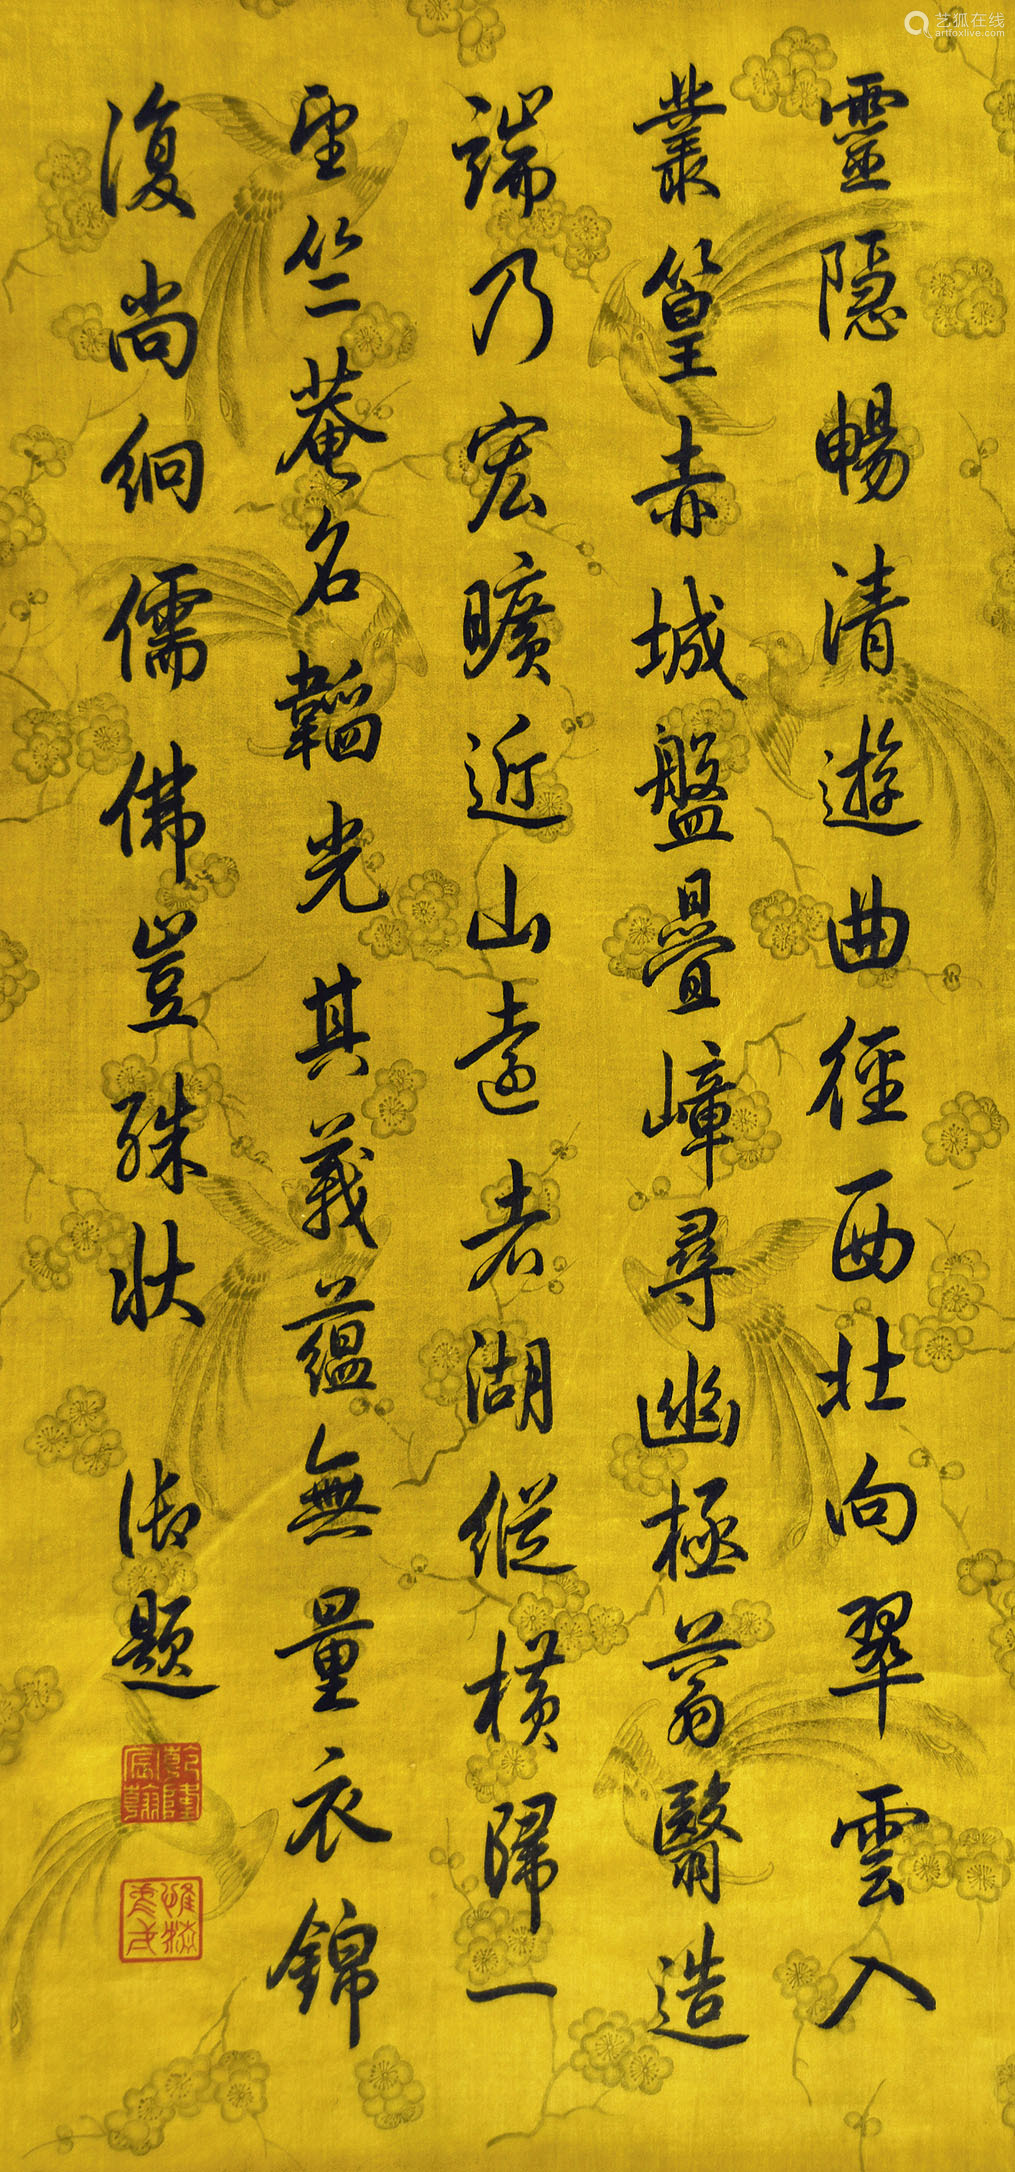 靈隱暢清遊曲徑西北向翠雲入
叢篁赤城盤疊嶂尋幽極蓊翳造
端乃宏曠近山遠者湖縱橫歸一
望竺菴名韜光其義蘊無量衣錦
復尚絅儒佛豈殊狀 御題
乾隆宸翰
艺狐在线
artfoxlive.com